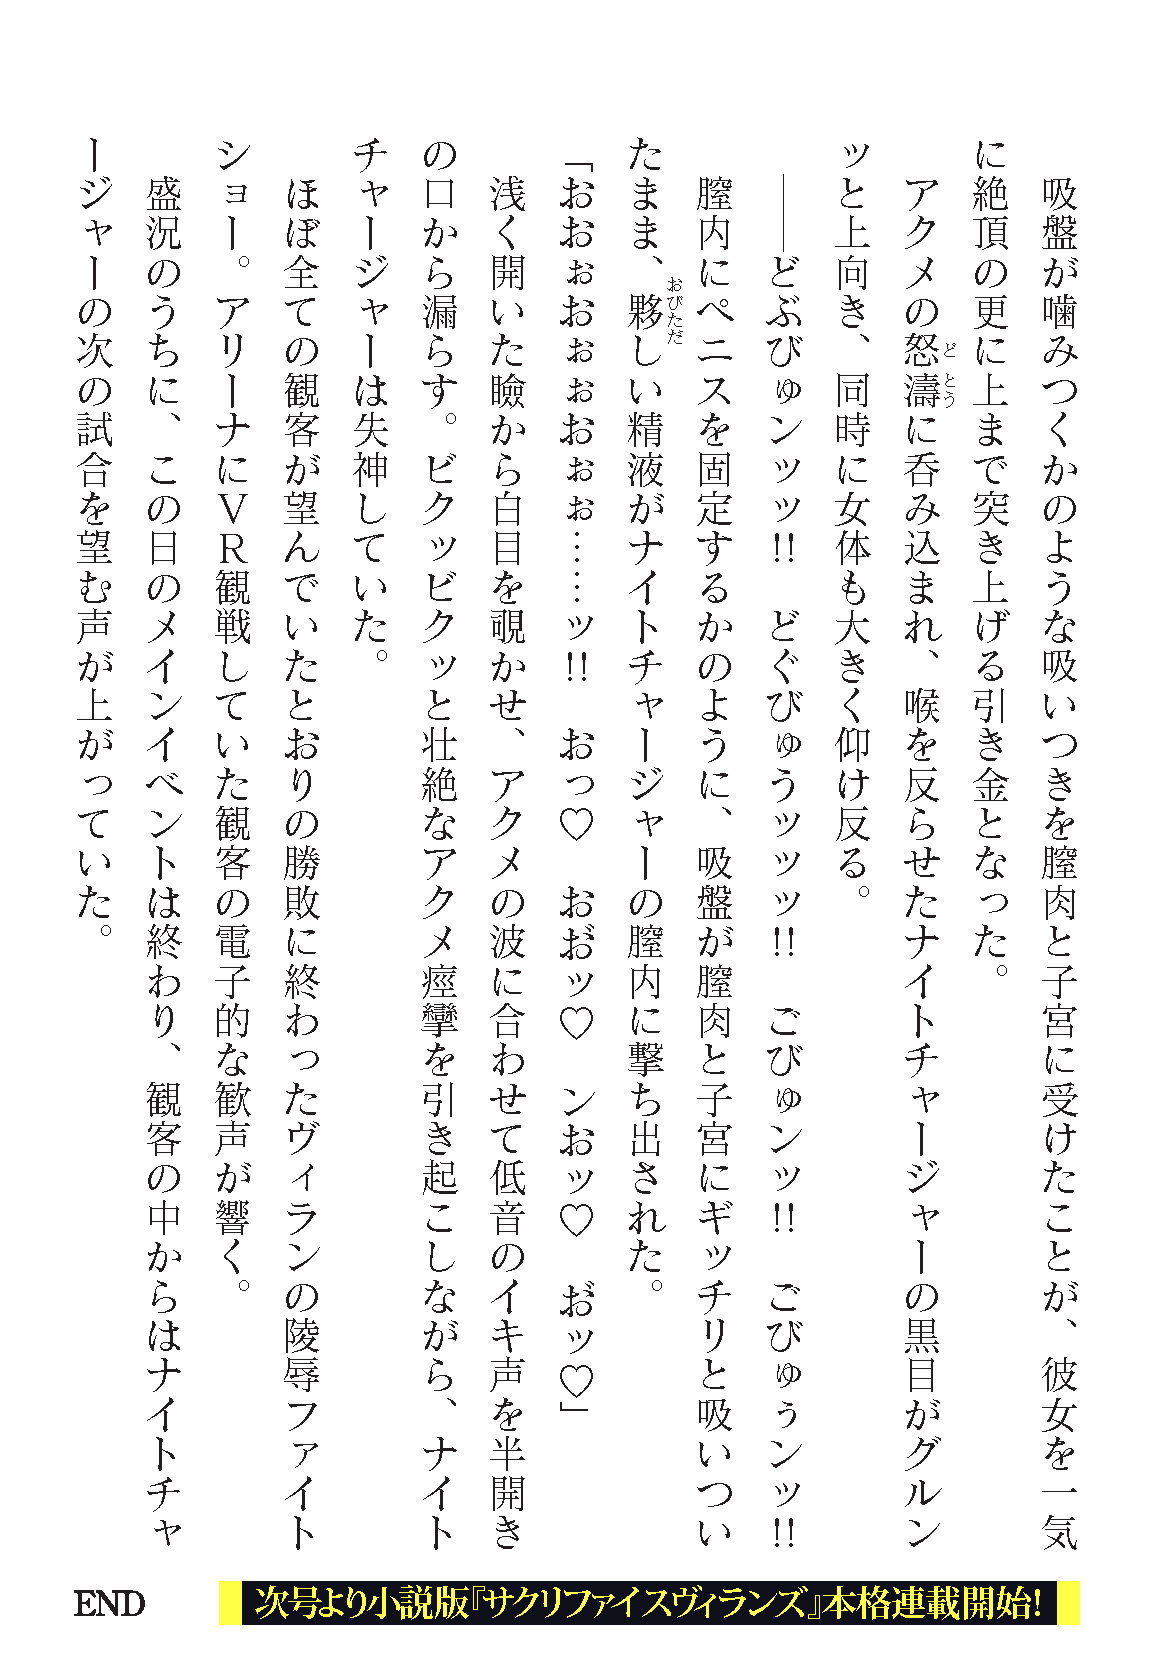 吸盤が噛みつくかのような吸いつきを膣肉と子宮に受けたことが、彼女を一気
に絶頂の更に上まで突き上げる引き金となった。
アクメの怒濤に呑み込まれ、喉を反らせたナイトチャージャーの黒目がグルン
ッと上向き、同時に女体も大きく仰け反る。
――どぶびゅンッッ!! どぐびゅうッッッ!! ごびゅンッ!! ごびゅぅンッ!!
膣内にペニスを固定するかのように、吸盤が膣肉と子宮にギッチリと吸いつい
たまま、夥しい精液がナイトチャージャーの膣内に撃ち出された。
「おおぉおぉぉおぉぉ……ッ!! おっ♡ おお゙ッ♡ ンおッ♡ お゙ッ♡」
浅く開いた瞼から白目を覗かせ、アクメの波に合わせて低音のイキ声を半開き
の口から漏らす。ビクッビクッと壮絶なアクメ痙攣を引き起こしながら、ナイト
チャージャーは失神していた。
ほぼ全ての観客が望んでいたとおりの勝敗に終わったヴィランの陵辱ファイト
ショー。アリーナにＶＲ観戦していた観客の電子的な歓声が響く。
盛況のうちに、この日のメインイベントは終わり、観客の中からはナイトチャ
ージャーの次の試合を望む声が上がっていた。
END
次号より小説版『サクリファイスヴィランズ』本格連載開始!